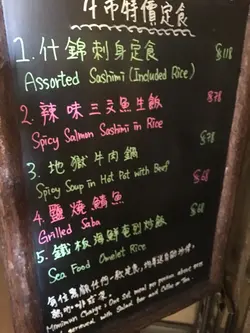 午市特價定食
1. 什錦刺身定食 $118
Assorted Sashimi (Included Rice)
2. 辣味三文魚生飯 $78
Spicy Salmon Sashimi in Rice
3. 地獄牛肉鍋 $78
Spicy Soup in Hot Pot with Beef
4. 鹽燒鯖魚 $68
Grilled Saba
5. 鐵板海鮮蛋炒飯 $68
Sea Food Omelet Rice
Minimum Charge: One Set meal per person
served with Salad bar and Coffee or Tea.